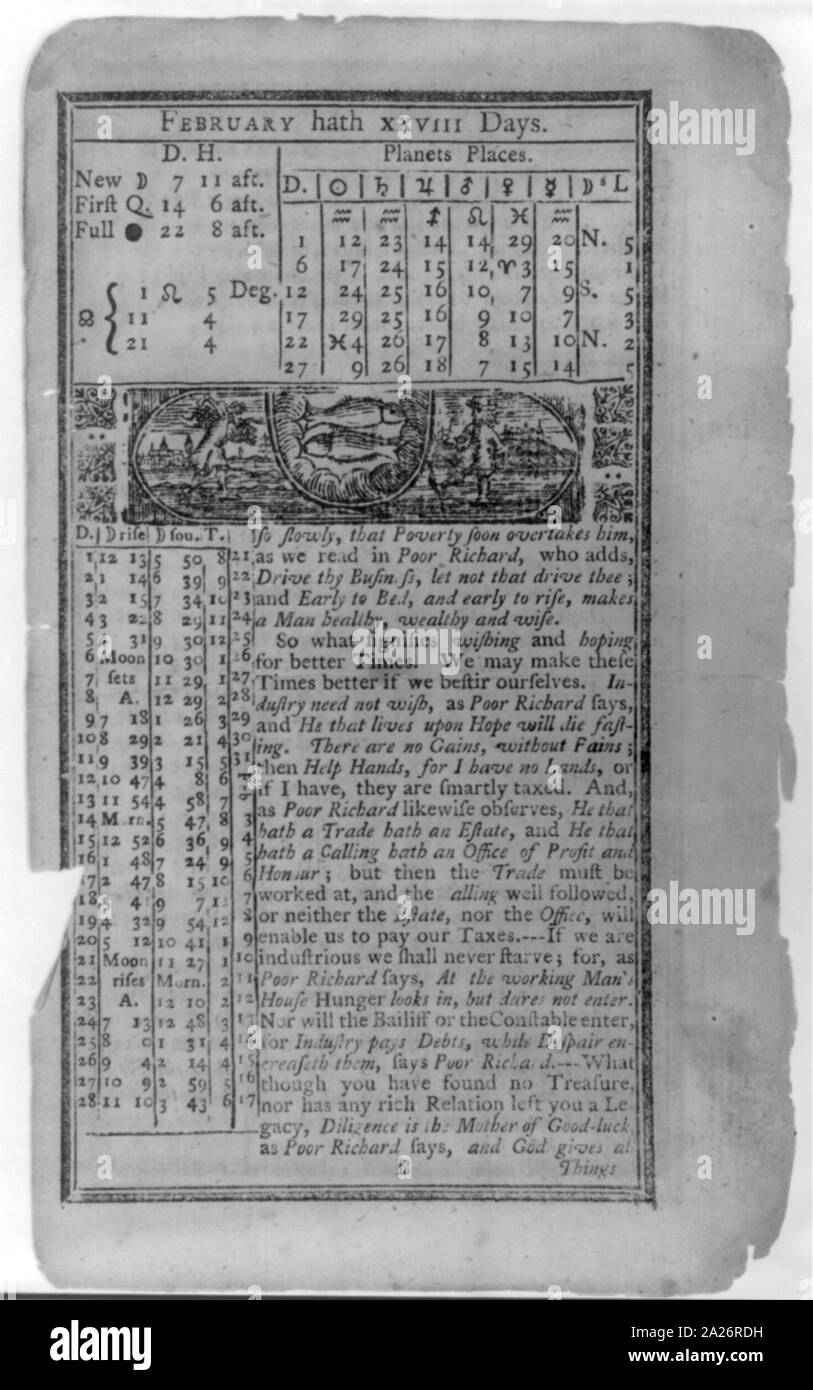 FEBRUARY hath XXVIII Days.
D. H.
New ☽ 7 11 aft.
Firſt Q. 14 6 aft.
Full ● 22 8 aft.
☊ { 1 ♌ 5 Deg.
11 4
21 4
Planets Places.
D. | ☉ | ♄ | ♃ | ♂ | ♀ | ☿ | ☽ˢ L
♒ ♒ ♐ ♌ ♓ ♒
1 12 23 14 14 29 20 N. 5
6 17 24 15 12 ♈3 15 1
12 24 25 16 10 7 9 S. 5
17 29 25 16 9 10 7 3
22 ♓4 26 17 8 13 10 N. 2
27 9 26 18 7 15 14 5
D. ☽ riſe ☽ ſou. T.
1 12 13 5 50 8 21
2 1 14 6 39 9 22
3 2 15 7 34 10 23
4 3 22 8 29 11 24
5 4 31 9 30 12 25
6 Moon 10 30 1 26
7 ſets 11 29 1 27
8 A. 12 29 2 28
9 7 18 1 26 3 29
10 8 29 2 21 4 30
11 9 39 3 15 5 31
12 10 47 4 8 6
13 11 54 4 58 7
14 M rn. 5 47 8 3
15 12 52 6 36 9 4
16 1 48 7 24 9 5
17 2 47 8 15 10 6
18 3 4 9 7 11 7
19 4 32 9 54 12 8
20 5 12 10 41 1 9
21 Moon 11 27 1 10
22 riſes Morn. 2 11
23 A. 12 10 2 12
24 7 13 12 48 3 13
25 8 0 1 31 4 14
26 9 4 2 14 4 15
27 10 9 2 59 5 16
28 11 10 3 43 6 17
ſo ſlowly, that Poverty ſoon overtakes him,
as we read in Poor Richard, who adds,
Drive thy Buſineſs, let not that drive thee;
and Early to Bed, and early to riſe, makes
a Man healthy, wealthy and wiſe.
So what ſignifies wiſhing and hoping
for better Times. We may make theſe
Times better if we beſtir ourſelves. In-
duſtry need not wiſh, as Poor Richard ſays,
and He that lives upon Hope will die faſt-
ing. There are no Gains, without Pains;
then Help Hands, for I have no Lands, or
if I have, they are ſmartly taxed. And,
as Poor Richard likewiſe obſerves, He that
hath a Trade hath an Eſtate, and He that
hath a Calling hath an Office of Profit and
Honour; but then the Trade muſt be
worked at, and the alling well followed,
or neither the Eſtate, nor the Office, will
enable us to pay our Taxes.---If we are
induſtrious we ſhall never ſtarve; for, as
Poor Richard ſays, At the working Man's
Houſe Hunger looks in, but dares not enter.
Nor will the Bailiff or the Conſtable enter,
for Induſtry pays Debts, while Deſpair en-
creaſeth them, ſays Poor Richard.---What
though you have found no Treaſure,
nor has any rich Relation left you a Le
gacy, Diligence is the Mother of Good-luck,
as Poor Richard ſays, and God gives all
Things
alamy
a
alamy
Image ID: 2A26RDH
www.alamy.com